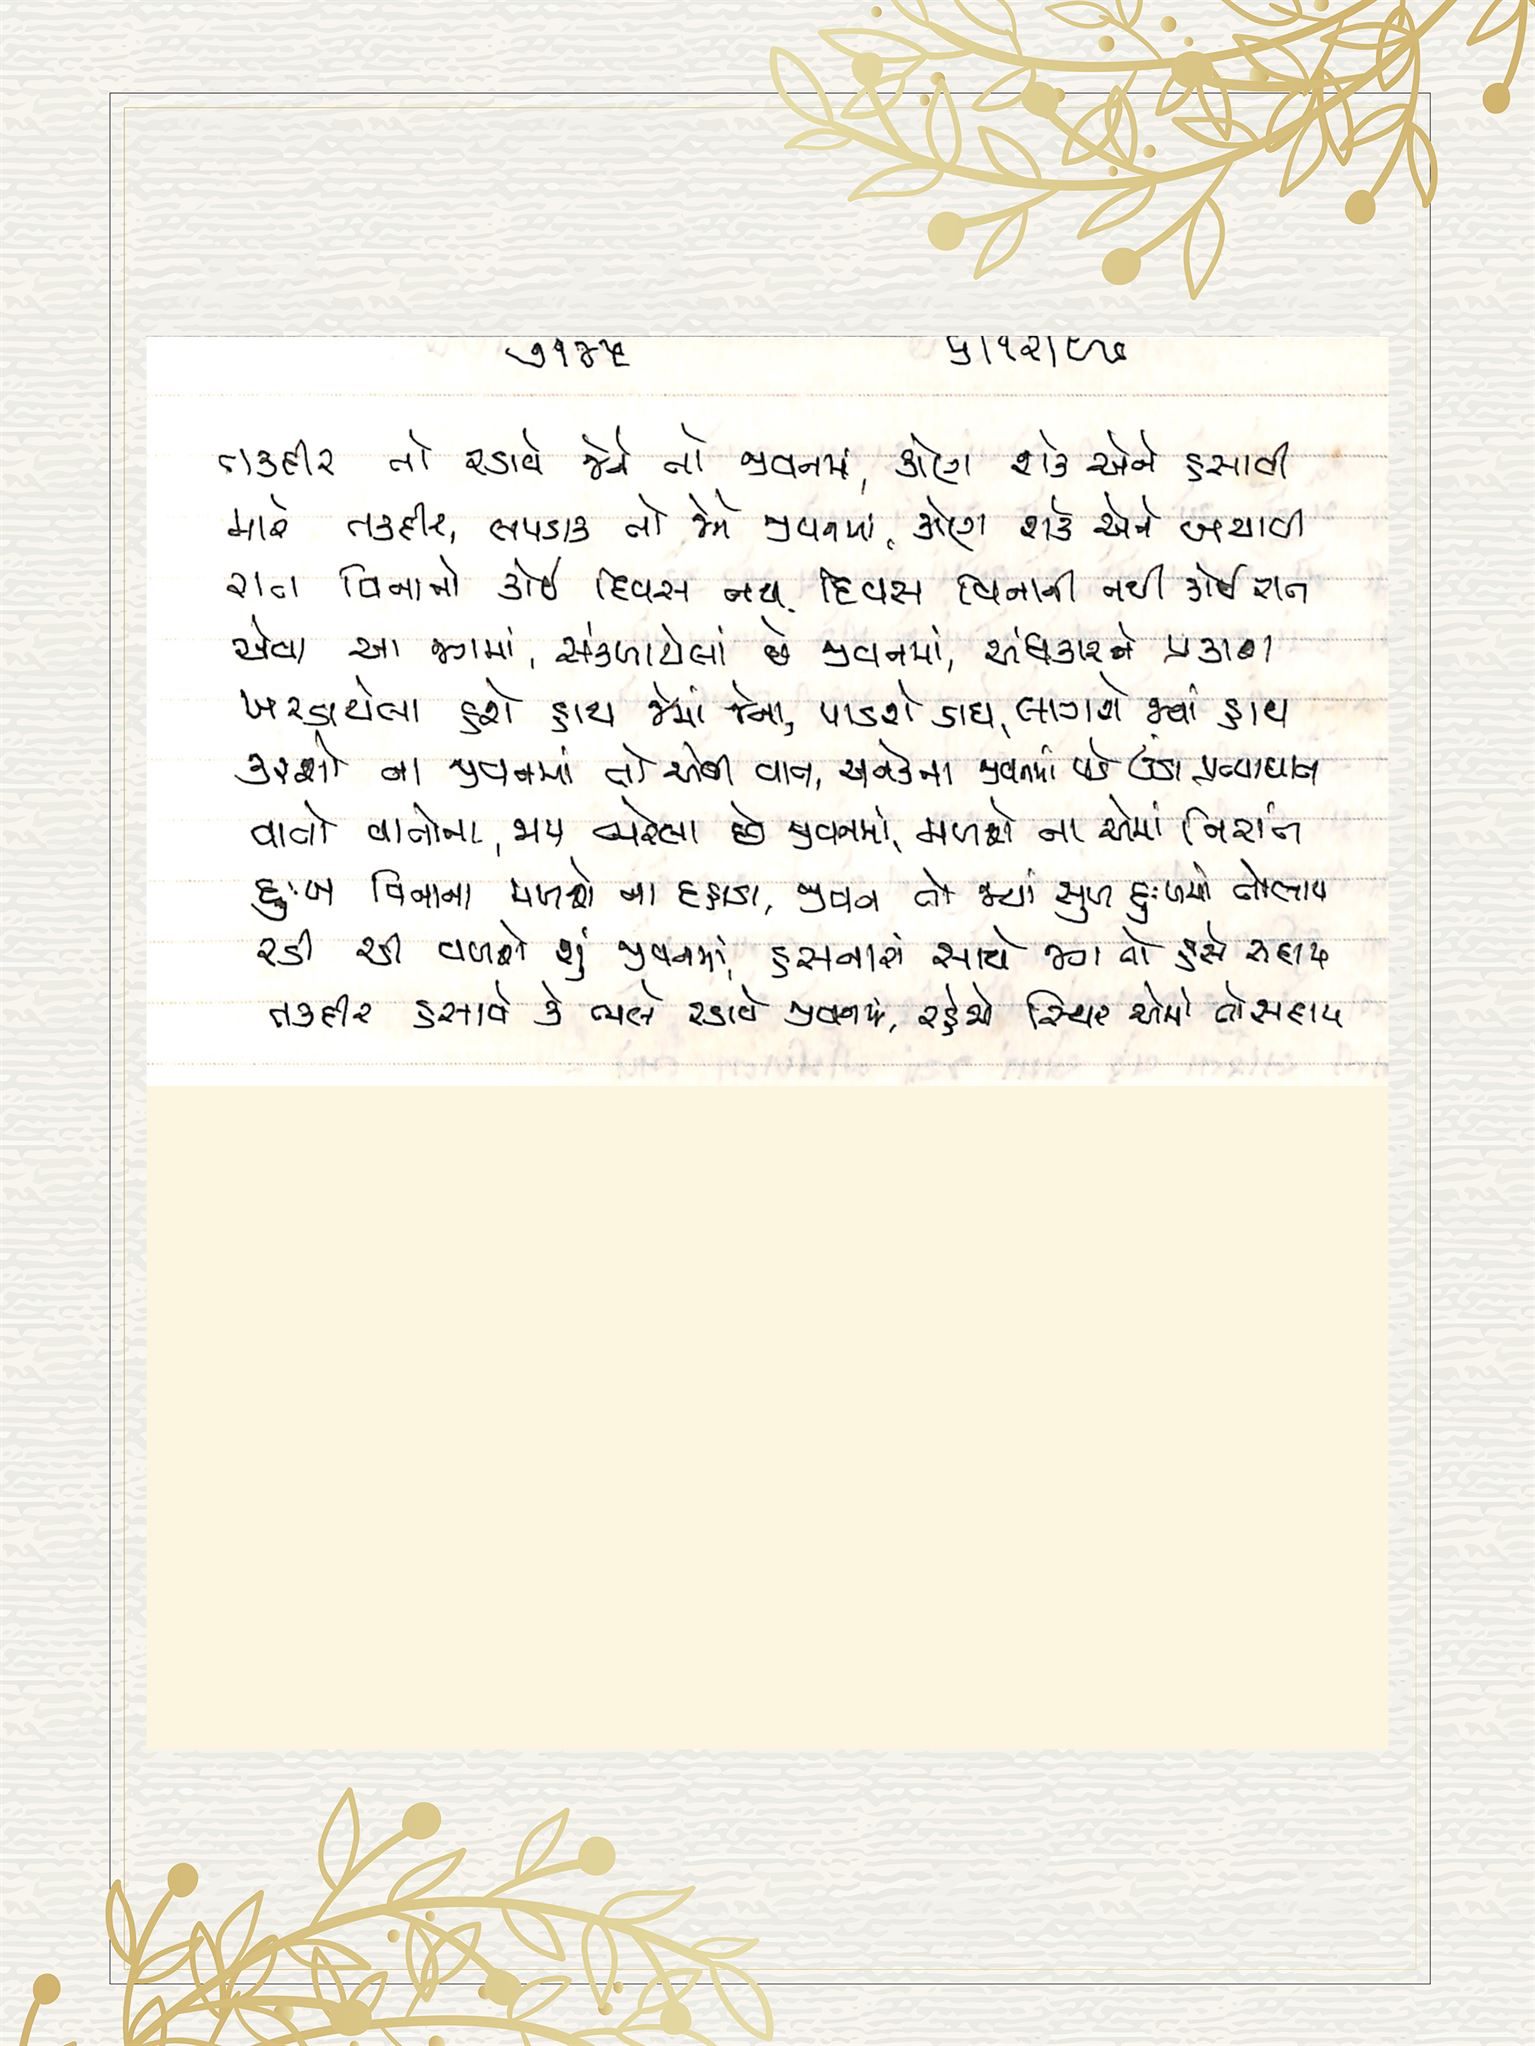 ૭૧૪૫ ૫/૧૨/૯૭
તકદીર તો રડાવે જેને તો જીવનમાં, કોણ શકે એને હસાવી
મારે તકદીર, લપડાક તો જેને જીવનમાં, કોણ શકે એને બચાવી
રાત વિનાનો કોઈ દિવસ નથી, દિવસ વિનાની નથી કોઈ રાત
એવા આ જગમાં, સંકળાયેલાં છે જીવનમાં, અંધકારને પ્રકાશ
ખરડાયેલા હશે હાથ જેમાં જેના, પાડશે ડાઘ, લાગશે જ્યાં હાથ
કરશો ના જીવનમાં તો એવી વાત, અનેકના જીવનમાં પડે ઊંડા પ્રત્યાઘાત
વાતો વાતોના, ભય ભરેલા છે જીવનમાં, મળશે ના એમાં નિરાંત
દુઃખ વિનાના મળશે ના દહાડા, જીવન તો જ્યાં સુખ દુઃખમાં તોલાય
રડી રડી વળશે શું જીવનમાં, હસનારાં સાથે જગ તો હસે સદાય
તકદીર હસાવે કે ભલે રડાવે જીવનમાં, રહેજો સ્થિર એમાં તો સદાય